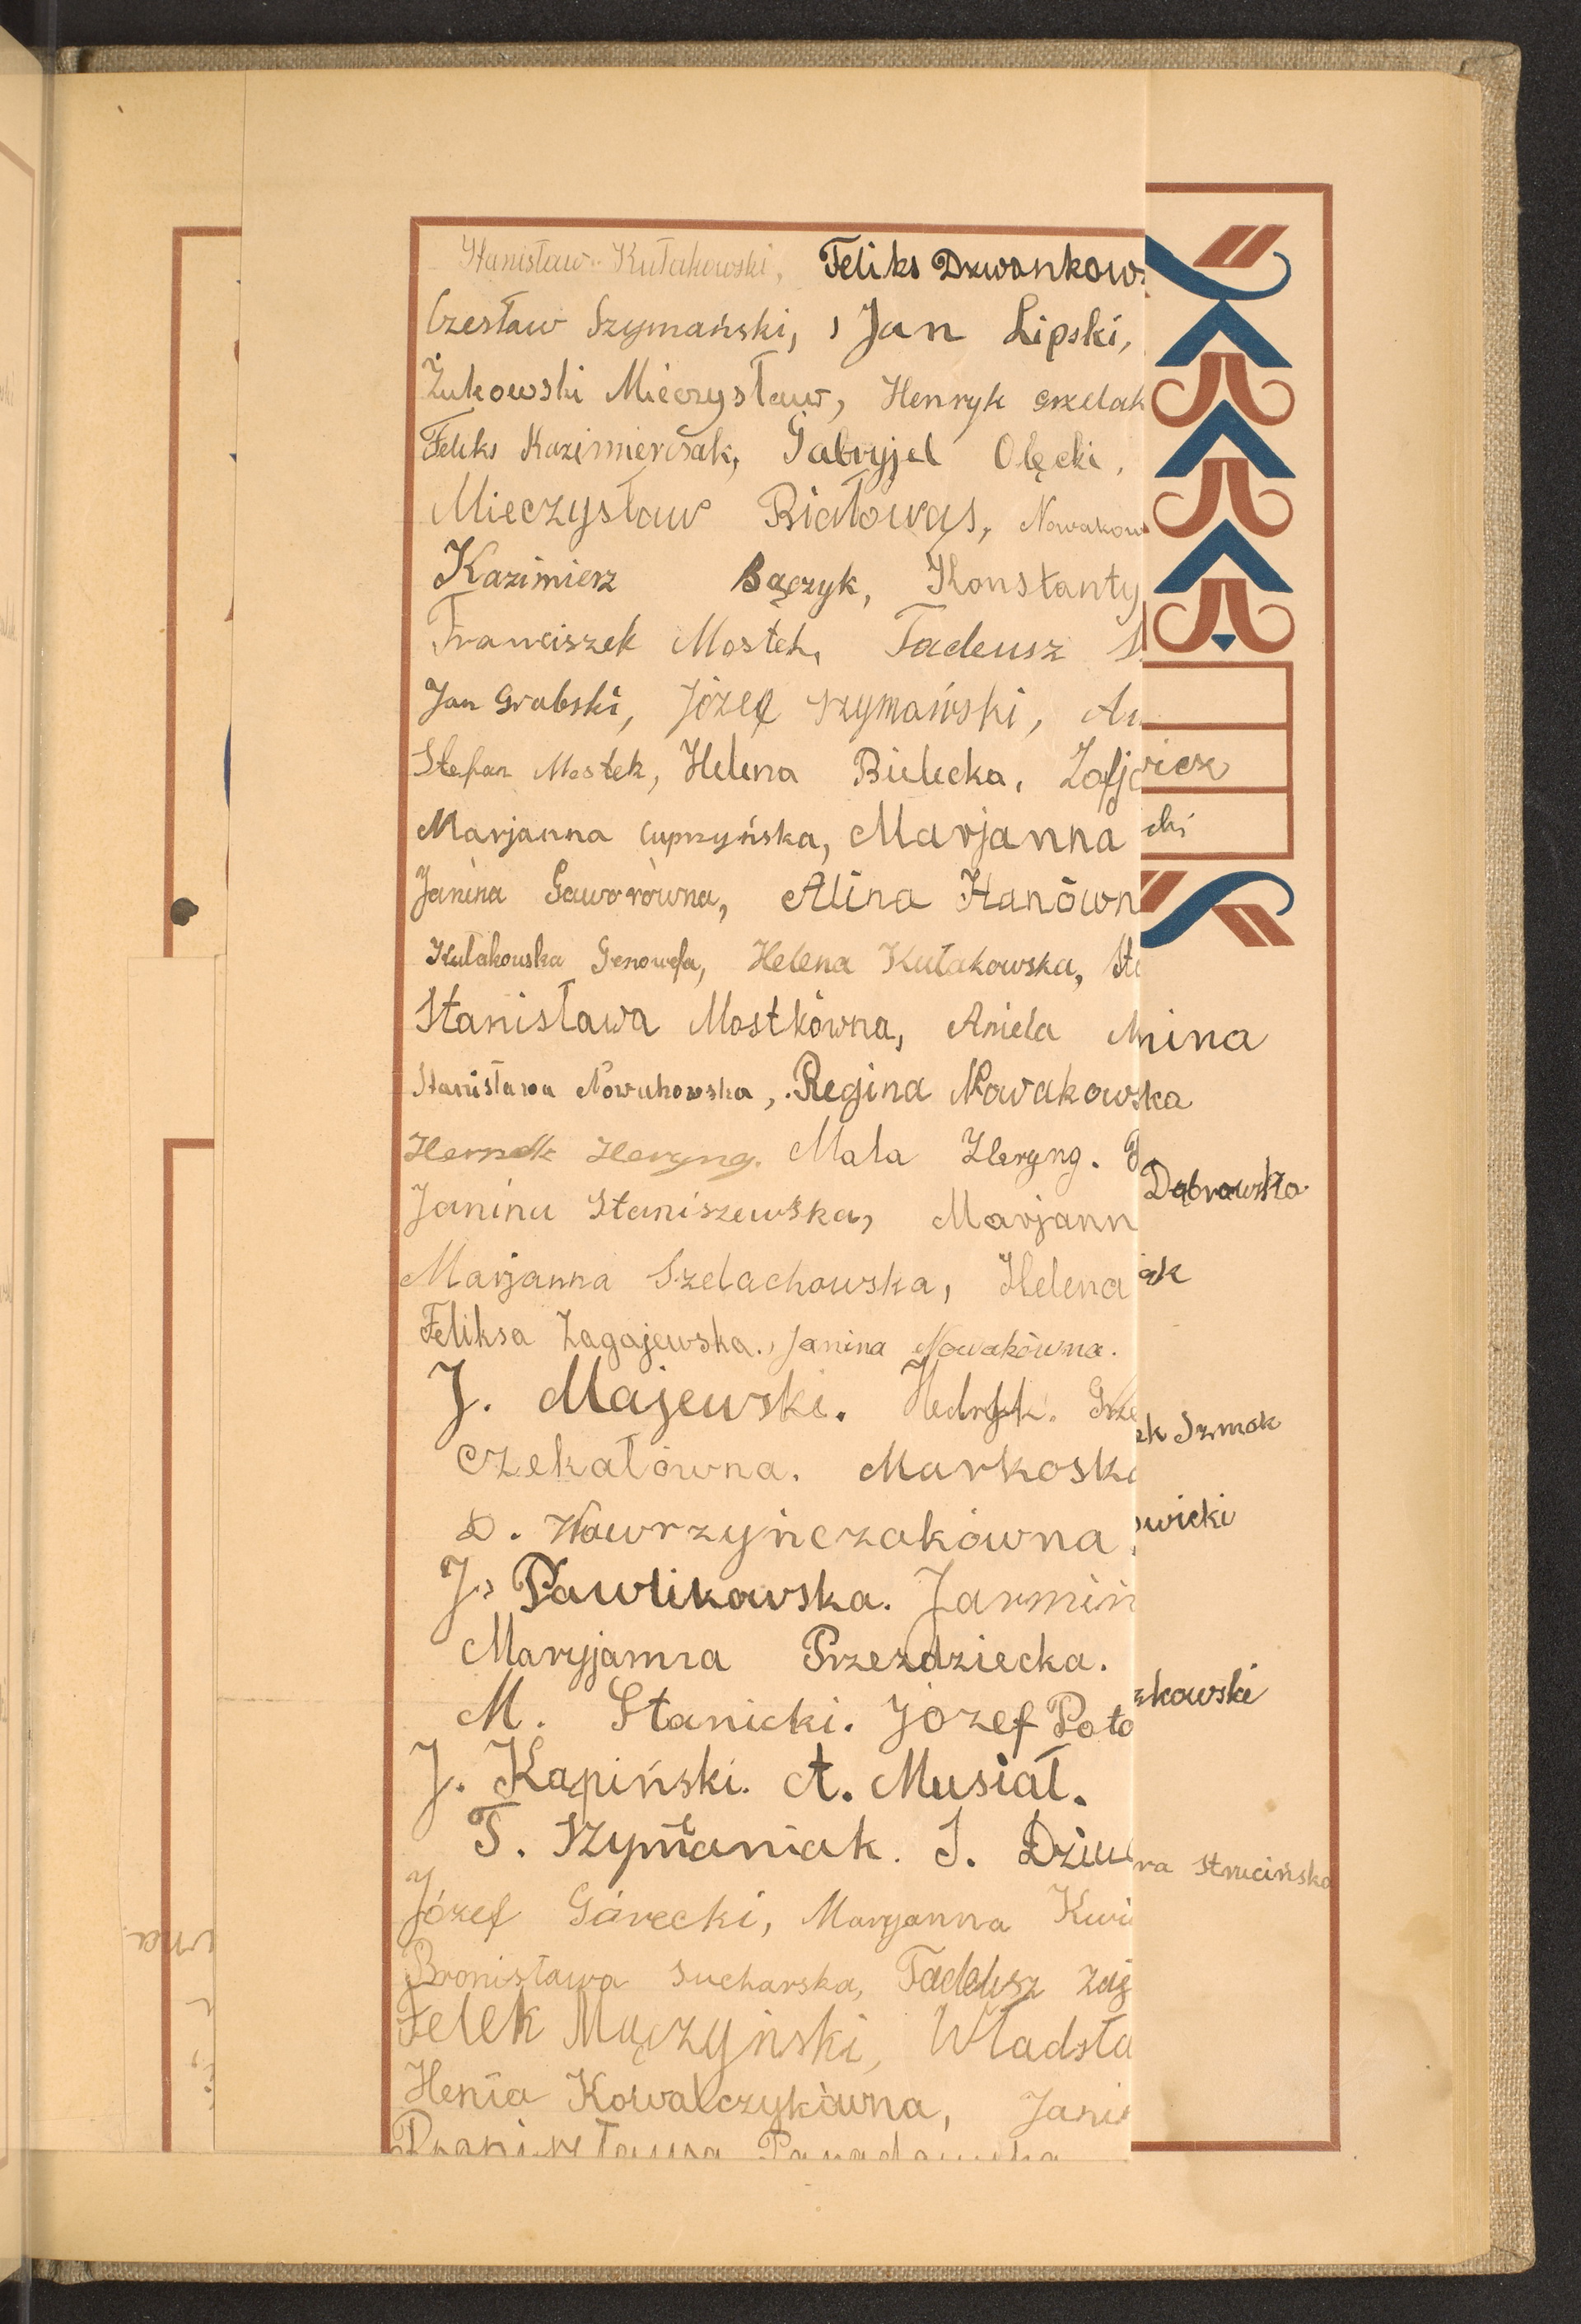 Stanisław Kułakowski, Feliks Dzwonkows
Czesław Szymański, Jan Lipski,
Żukowski Mieczysław, Henryk Grzelak
Feliks Kazimierčak, Gabryjel Olęcki,
Mieczysław Białowąs, Nowakow
Kazimierz Bączyk, Konstanty
Franciszek Mostek, Tadeusz
Jan Grabski, Józef Szymański,
Stefan Mostek, Helena Bielecka, Zofja
wicz
Marjanna Cuprzyńska, Marjanna
cki
Janina Gaworówna, Alina Hanówn
Kułakouska Genowefa, Helena Kułakowska, Ste
Stanisława Mostkówna, Aniela
nina
Stanisława Nowakowska, Regina Nowakowska
Heryng. Mala Heryng.
Dąbrowska
Janina Staniszewska, Marjann
Marjanna Szelachowska, Helena
ak
Feliksa Zagajewska., Janina Nowakówna.
J. Majewski. Grze
ek Szmak
Czekałówna. Markoska
D. Wawrzyńczakówna
owicki
J. Pawlikowska. Jarmiń
Maryjanna Przezdziecka.
M. Stanicki. Józef Poto
zkowski
J. Kapiński. A. Musiał.
T. Szymaniak. S. Dziu
ra Strucińska
Józef Górecki, Maryanna Kwi
Bronisława Sucharska, Tadeusz Zaj
Felek Mączyński, Władsła
Henia Kowalczykówna, Jani